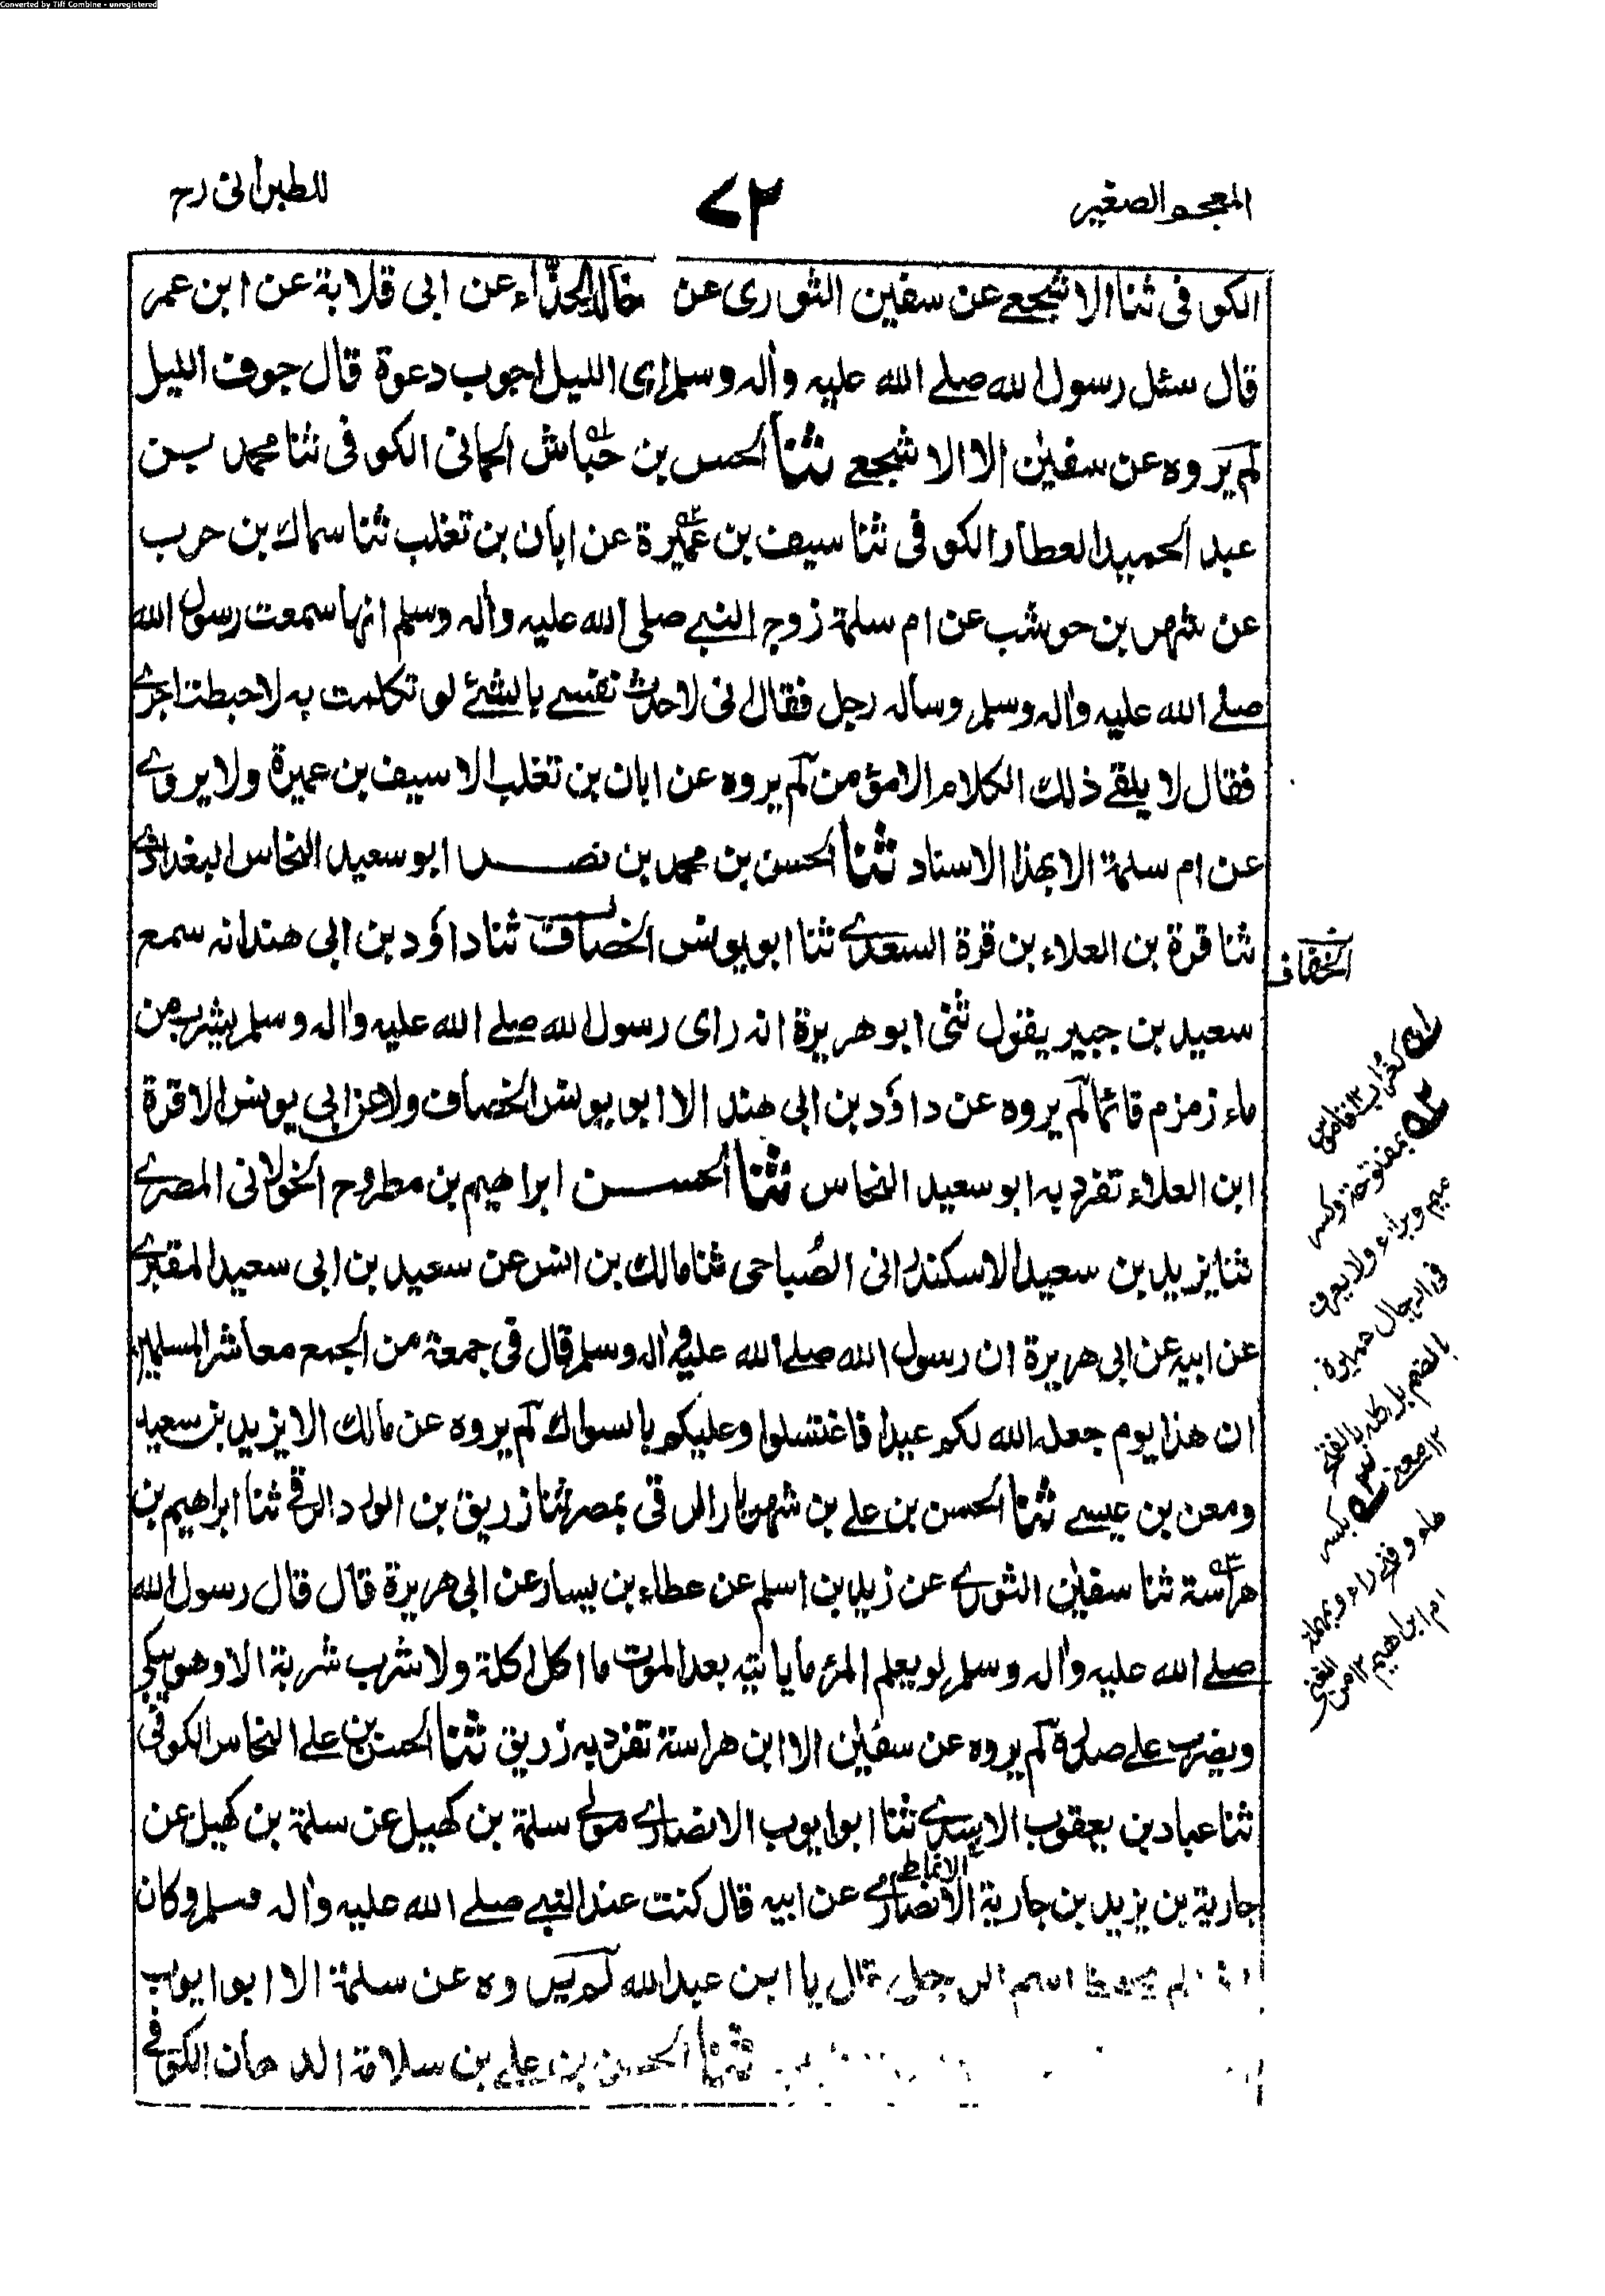 Converted by Tiff Combine - unregistered
المعجم الصغير
٧٢
للطبرانى رح
الكوفى ثنا الاشجعے عن سفين الثورى عن خالد الحذّاء عن ابى قلابة عن ابن عمر
قال سئل رسول الله صلے الله عليه واٰله وسلم اى الليل اجوب دعوة قال جوف الليل
لم يروه عن سفين الا الاشجعے ثنا الحسن بن حباش الحمانى الكوفى ثنا محمد بن
عبد الحميد العطار الكوفى ثنا سيف بن عميرة عن ابان بن تغلب ثنا سماك بن حرب
عن شهر بن حوشب عن ام سلمة زوج النبے صلى الله عليه واٰله وسلم انها سمعت رسول الله
صلے الله عليه واٰله وسلم وساله رجل فقال انى لاحدث نفسے بالشئ لو تكلمت به لاحبطت اجرے
فقال لا يلقے ذلك الكلام الا مؤمن لم يروه عن ابان بن تغلب الا سيف بن عميرة ولا يروے
عن ام سلمة الا بهذا الاسناد ثنا الحسن بن محمد بن نصر ابو سعيد النخاس البغدادے
ثنا قرة بن العلاء بن قرة السعدے ثنا ابو يونس الخصاف ثنا داؤد بن ابى هند انه سمع
الخفاف
سعيد بن جبير يقول ثنى ابو هريرة انه راى رسول الله صلے الله عليه واٰله وسلم يشرب من
ماء زمزم قائما لم يروه عن داؤد بن ابى هند الا ابو يونس الخصاف ولا عن ابى يونس الا قرة
ابن العلاء تفرد به ابو سعيد النخاس ثنا الحسن ابراهيم بن مطروح الخولانى المصرے
ثنا يزيد بن سعيد الاسكندرانى الصُباحى ثنا مالك بن انس عن سعيد بن ابى سعيد المقبرے
عن ابيه عن ابى هريرة ان رسول الله صلے الله عليه واٰله وسلم قال فى جمعة من الجمع معاشر المسلمين
ان هذا يوم جعله الله لكم عيدا فاغتسلوا وعليكم بالسواك لم يروه عن مالك الا يزيد بن سعيد
ومعن بن عيسے ثنا الحسن بن علے بن شهريار الرقى بمصر ثنا زريق بن الورد الرقے ثنا ابراهيم بن
هراسة ثنا سفين الثورے عن زيد بن اسلم عن عطاء بن يسار عن ابى هريرة قال قال رسول الله
صلے الله عليه واٰله وسلم لو يعلم المرء ما ياتيه بعد الموت ما اكل اكلة ولا شرب شربة الا وهو يبكى
ويضرب علے صدره لم يروه عن سفين الا ابن هراسة تفرد به زريق ثنا الحسن بن علے النخاس الكوفى
ثنا عباد بن يعقوب الاسدے ثنا ابو ايوب الانصارے مولے سلمة بن كهيل عن سلمة بن كهيل عن
الانماطے
جارية بن يزيد بن جارية الانصارے عن ابيه قال كنت عند النبے صلے الله عليه واٰله وسلم وكان
لم يحفظ اسم الرجل قال يا ابن عبد الله لم يروه عن سلمة الا ابو ايوب
ثنا الحسن بن علے بن سلامة الدهان الكوفے
كغراب ١٢ قاموس
بمفتوحة وكسر
ميم وبراء ولا يعرف
فى الرجال عميرة
بالضم بل كله بالفتح
١٢ مغنے بكسر
هاء وفتح راء وبمهملة
ام ابراهيم ١٢ من المغنى